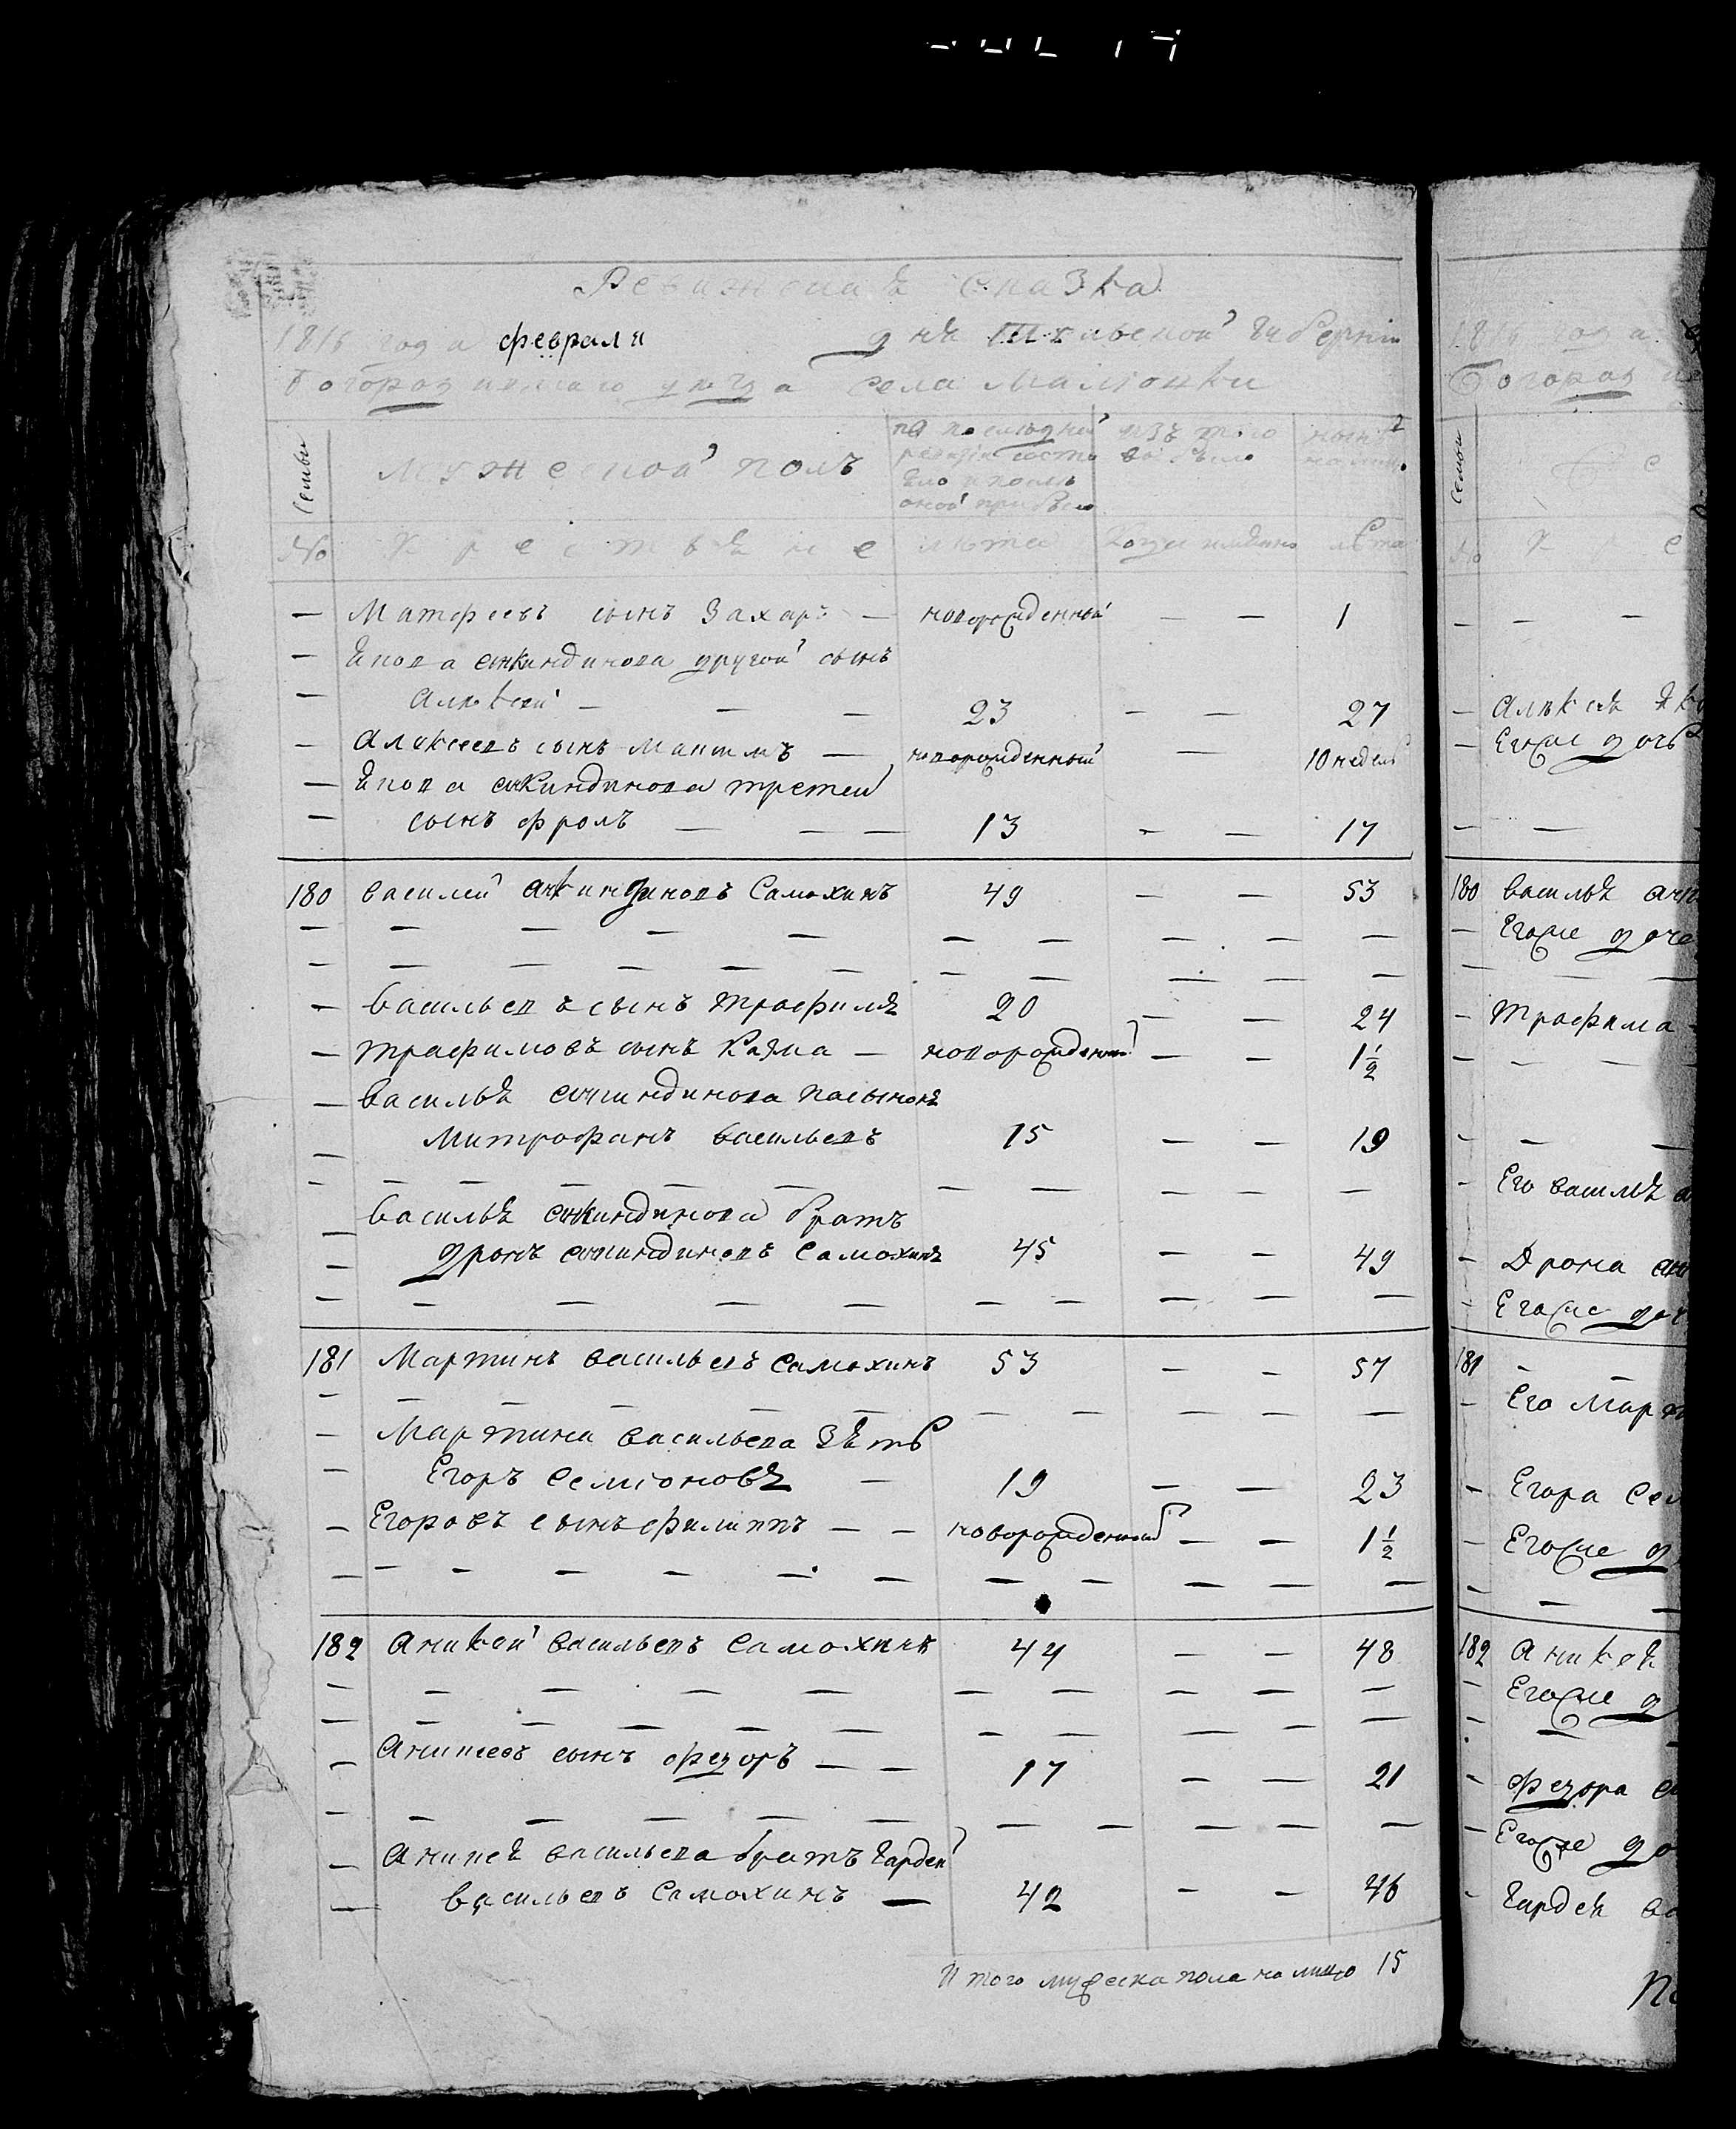 Ревижская сказка
1816 года февраля дня Тульской губернии
Богородицкаго уезда села Малюнки
Семьи
мужеской полъ
по последней
ревизiи состо
яло и после
оной прибыло
изъ того
выбыло
нынѣ
на лицо
№ Крестьяне лета Когда именно лѣта
— Матфеевъ сынъ Захаръ — новорожденный — — 1
— Якова анкиндинова другой сынъ
— Алѣксей — — — 23 — — 27
— Алексеевъ сынъ Мантилъ — новорожденный — 10 недель
— Якова анкиндинова третей
— сынъ фролъ — — — 13 — — 17
180 Василей анкиндиновъ Самохинъ 49 — — 53
— Васильевъ сынъ трафимъ 20 — — 24
— трафимовъ сынъ Казма — новорожденный — — 1½
— Василья анкиндинова пасынокъ
— Митрофанъ Васильевъ 15 — — 19
— Василья анкиндинова братъ
— дронъ анкиндиновъ Самохинъ 45 — — 49
181 Мартинъ Васильевъ Самохинъ 53 — — 57
— Мартина Васильева Зять
— Егоръ Семионовъ — 19 — — 23
— Егоровъ сынъ филиппъ — — новорожденный — — 1½
182 Аникей Васильевъ Самохинъ 44 — — 48
— Аникеевъ сынъ федоръ — — 17 — — 21
— Аникея Васильева братъ Гардей
— Васильевъ Самохинъ — 42 — — 46
Итого мужеска пола на лицо 15
1816 года
Богород
Семьи
№ К р е
— Алѣксея Як
— Егоже дочь
180 Василья анк
— Егоже доче
— Трафима
— Его Василья
— Дрона анк
— Егоже доч
181 —
— Его Март
— Егора Сем
— Егоже д
182 Аникея
— Егоже д
— федора
— Егоже до
— Гардея Ва